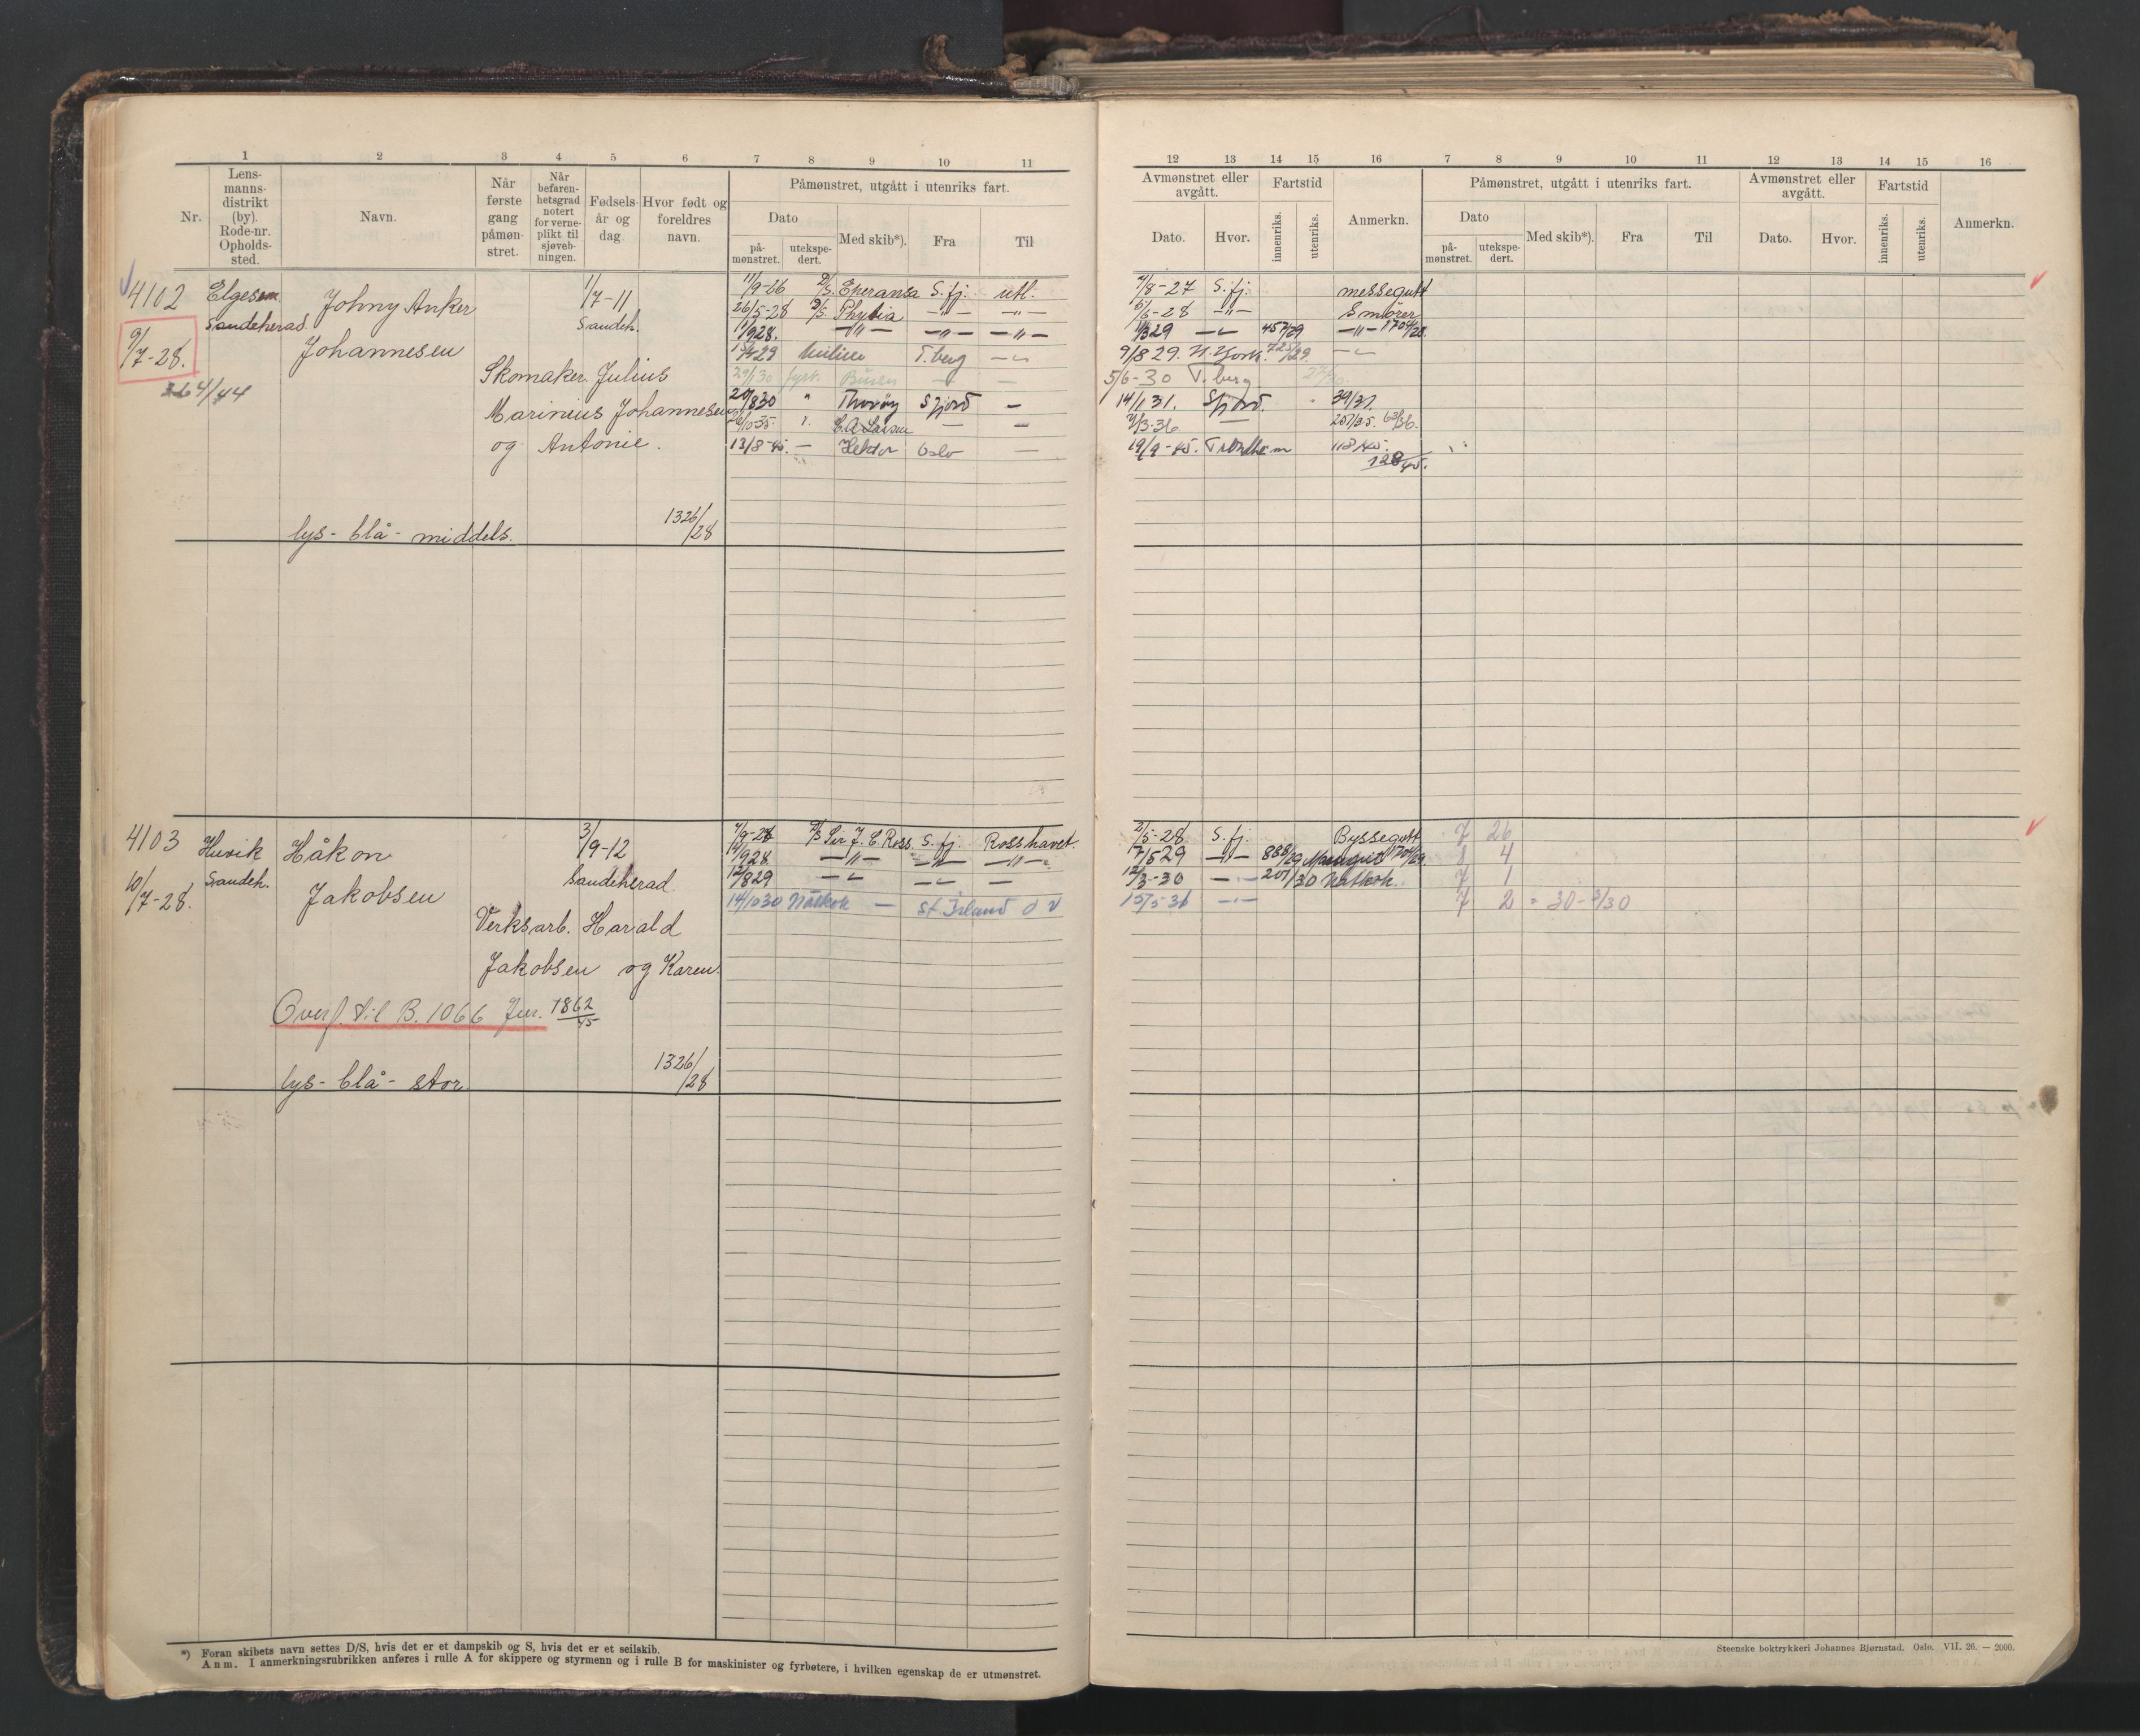 1 2 3 4 5 6 7 8 9 10 11
Nr.
Lens-
manns-
distrikt
(by).
Rode-nr.
Opholds-
sted.
Navn.
Når
første
gang
påmøn-
stret.
Når
befaren-
hetsgrad
notert
for verne-
plikt til
sjøveb-
ningen.
Fødsels-
år og
dag.
Hvor født og
foreldres
navn.
Påmønstret, utgått i utenriks fart.
Dato
på-
mønstret.
utekspe-
dert.
Med skib*).
Fra
Til
4102 Elgesem Johny Anker 1/7-11
Sandeherad. Sandeh.
9/7-28. Johannesen
264/44
Skomaker Julius
Marinius Johannesen
og Antonie.
lys- blå- middels. 1326/28
11/9-26 D/S. Eperansa S.fj. utl.
26/5-28 D/S Phybia -"- -"-
11/928. -"- -"- -"-
T.berg
29/1 30 fyrb. Busen — —
20/830 " Thorøy Sfjord —
C.A. Larsen — —
13/8-45. — Hektor Oslo —
4103 Huvik Håkon 3/9-12
Sandeh. Sandeherad.
10/7-28. Jakobsen
Verksarb. Harald
Jakobsen og Karen.
Overf. til B. 1066 Jur. 1862/45
lys- blå- stor 1326/28
D/S Sir J. C. Ross. S. fj. Rosshavet.
/928 -"- -"- -"-
12/829 -"- -"- —
14/1030 Natkok — St. Island
*) Foran skibets navn settes D/S, hvis det er et dampskib og S, hvis det er et seilskib.
Anm. I anmerkningsrubrikken anføres i rulle A for skippere og styrmenn og i rulle B for maskinister og fyrbøtere, i hvilken egenskap de er utmønstret.
12 13 14 15 16 7 8 9 10 11 12 13 14 15 16
Avmønstret eller
avgått.
Dato.
Hvor.
Fartstid
innenriks.
utenriks.
Anmerkn.
Påmønstret, utgått i utenriks fart.
Dato
på-
mønstret.
utekspe-
dert.
Med skib*).
Fra
Til
Avmønstret eller
avgått.
Dato.
Hvor.
Fartstid
innenriks.
utenriks.
Anmerkn.
/8-27 S. fj. messegutt
/6-28 -"- Smører
/329 457/29 -"- 1704/28.
9/8 29. N. York. 725/29.
5/6-30 T. berg
14/1 31. Sfjord. 39/31.
/3-36 — 207/35. 63/36.
19/9-45. Trondhem 118/45.
128/45.
2/5-28 S. fj. Byssegutt 7 26
7/529 -"- 888/29 1704/29 4
12/3-30 — 207/30 Natkok. 7 1
15/5-31 7 2 = 30-
Steenske boktrykkeri Johannes Bjørnstad. Oslo. VII. 26. — 2000.